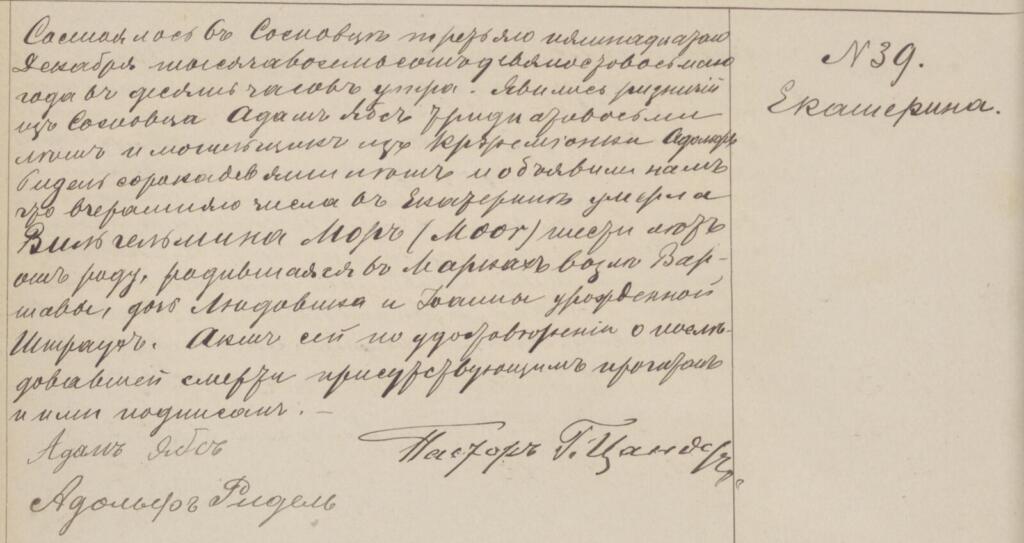 Состоялось въ Сосновцѣ третьяго пятнадцатаго
Декабря тысяча восемьсотъ девяносто восьмаго
года въ десять часовъ утра. Явились
изъ Сосновца Адамъ Ябсъ тридцати восьми
лѣтъ и могильщикъ изъ Адольфъ
Ридель сорока девяти лѣтъ и объявили намъ
что вчерашняго числа въ Екатеринѣ умерла
Вильгельмина Моръ (Moor) шести лѣтъ
отъ роду, родившаяся въ Маркахъ возлѣ Вар-
шавы, дочь Людовика и Іоанны урожденной
Штраухъ. Актъ сей по удостовѣреніи о послѣ-
довавшей смерти присутствующимъ прочтенъ
и ими подписанъ. —
Адамъ Ябсъ
Пасторъ Г. Цандеръ
Адольфъ Ридель
N 39.
Екатерина.